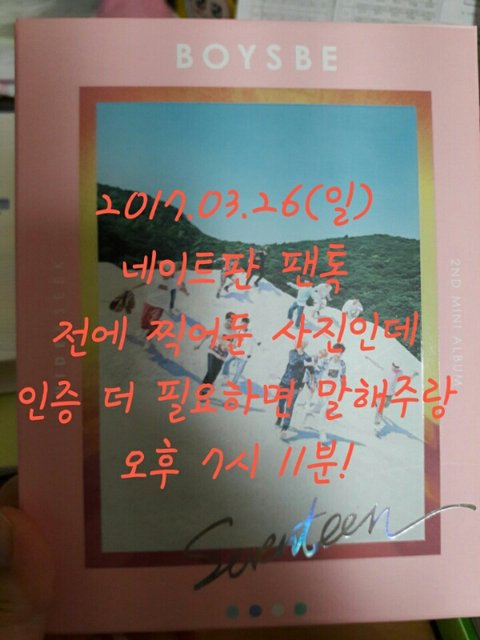 BOYSBE
2017.03.26(일)
네이트판 팬톡
전에 찍어둔 사진인데
인증 더 필요하면 말해주랑
오후 7시 11분!
2ND MINI ALBUM
Seventeen